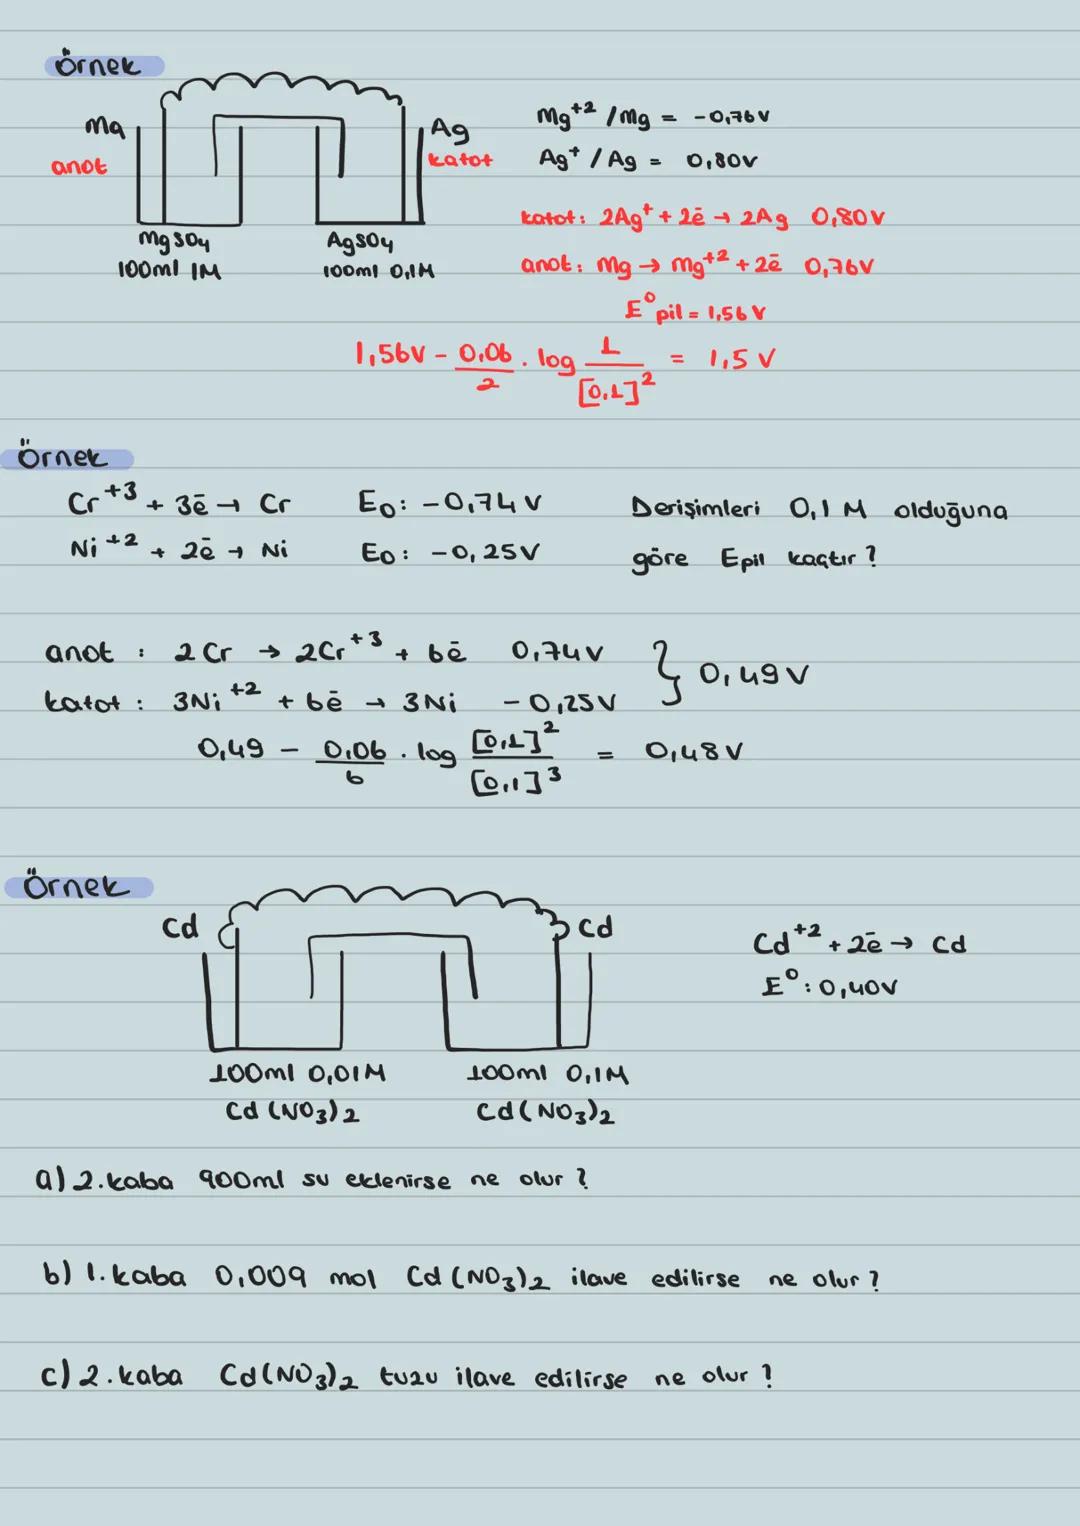 Örnek
Mg
anot
Ag
katot
MgSO4
100ml 1M
AgSO4
100ml 0,1M
Mg+2 / Mg = -0,76V
Ag+ / Ag = 0,80V
katot: 2Ag+ + 2ē → 2Ag 0,80V
anot: Mg → Mg+2 + 2ē 0,76V
E° pil = 1,56 V
1,56V - 0,06/2 . log 1/[0,1]² = 1,5 V
Örnek
Cr+3 + 3ē → Cr E0: -0,74V
Ni+2 + 2ē → Ni E0: -0,25V
Derişimleri 0,1 M olduğuna
göre Epil kaçtır?
anot : 2Cr → 2Cr+3 + 6ē 0,74V
katot : 3Ni+2 + 6ē → 3Ni -0,25V } 0,49V
0,49 - 0,06/6 . log [0,1]²/[0,1]³ = 0,48V
Örnek
Cd
Cd
100ml 0,01M
Cd(NO3)2
100ml 0,1M
Cd(NO3)2
Cd+2 + 2ē → Cd
E°: 0,40V
a) 2.kaba 900ml su eklenirse ne olur?
b) 1.kaba 0,009 mol Cd(NO3)2 ilave edilirse ne olur?
c) 2.kaba Cd(NO3)2 tuzu ilave edilirse ne olur?